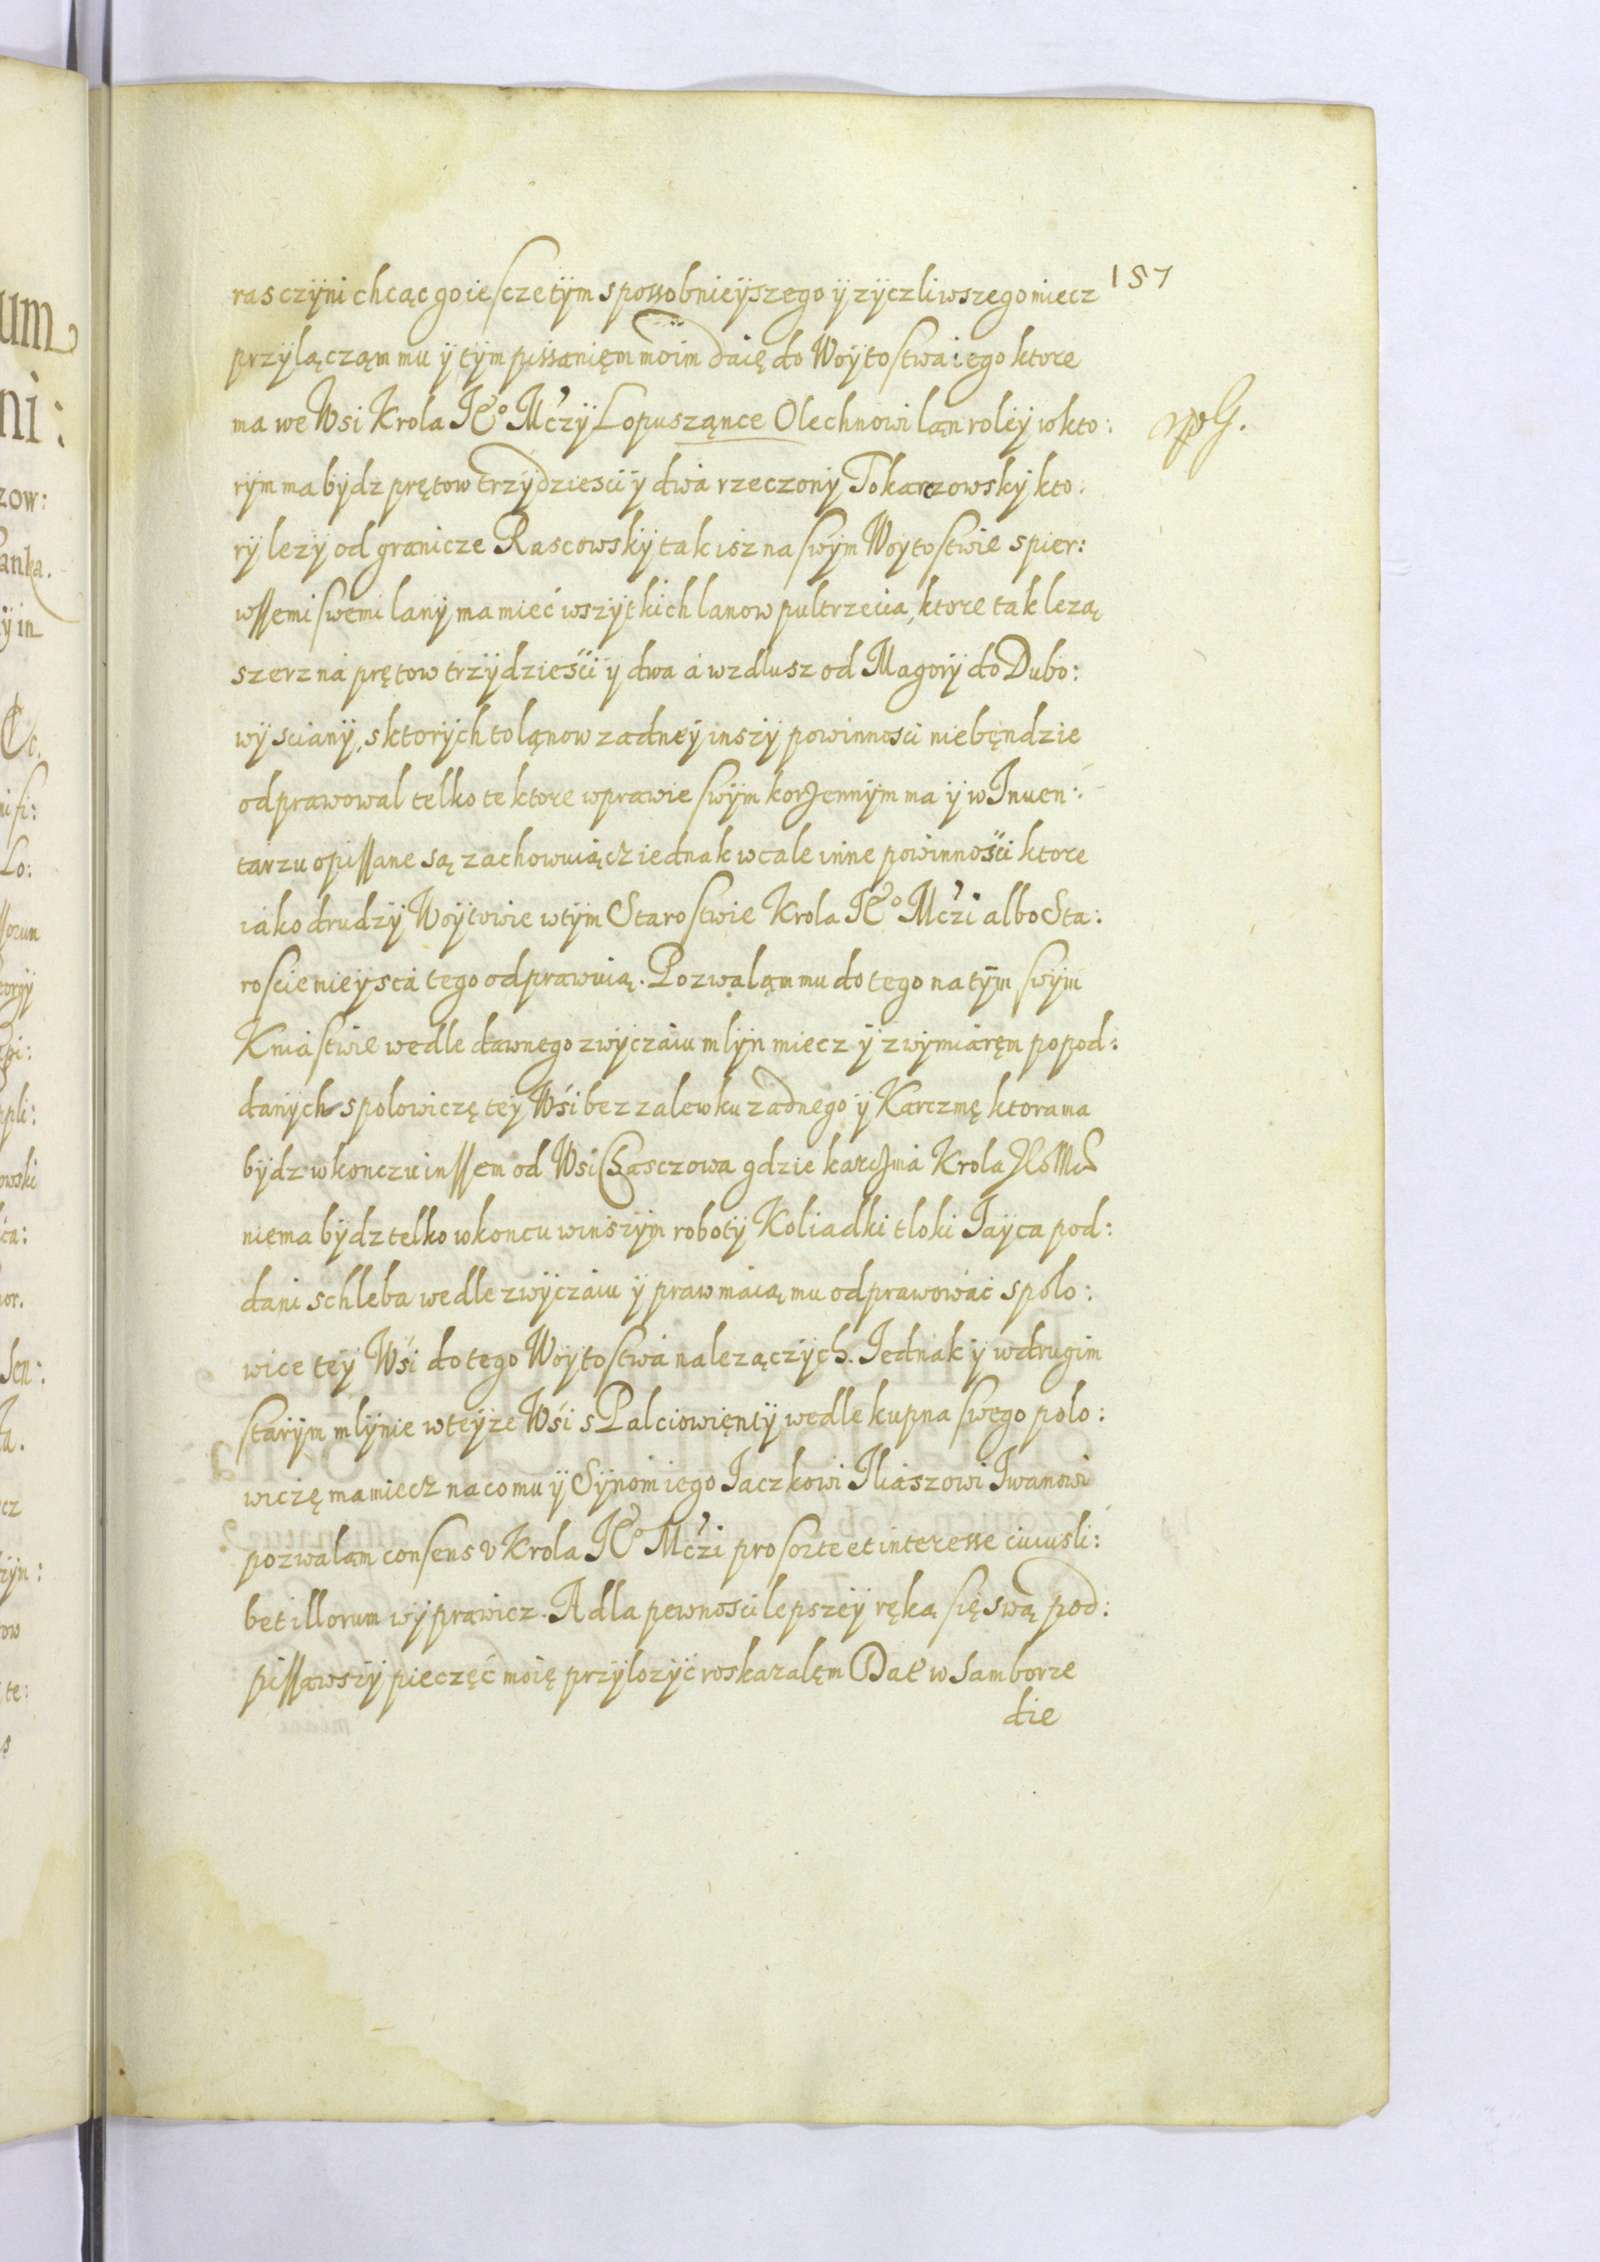 157
ras czÿni chcąc go iescze tÿm spossobnieÿszego ÿ zÿczliwszego miecz
przÿlącząm mu ÿ tÿm pissanięm moim daię do Woÿtostwa iego ktore
ma we Wsi Krola Je° Mczÿ Lopuszańce Olechnowi ląn roleÿ w kto:
rÿm ma bÿdz prętow trzÿdziesci ÿ dwa rzeczonÿ Tokarzowskÿ kto:
rÿ lezÿ od granicze Rascowskÿ tak isz na swÿm Woÿtostwie s pier:
wssemi swemi lanÿ ma mieć wszÿtkich lanow pultrzecia, ktore tak lezą
szerz na prętow trzÿdziesci ÿ dwa a wzdlusz od Magorÿ do Dubo:
wÿ scianÿ, s ktorÿch to ląnow zadneÿ inszÿ powinnosci niebęndzie
odprawowal telko te ktore w prawie swÿm korzennÿm ma ÿ w Inuen:
tarzu opissane są zachowuiącz iednak wcale inne powinnosci ktore
iako drudzÿ Woÿtowie w tÿm Starostwie Krola Je° Mczi albo Sta:
roscie nieÿsca tego odprawuią. Pozwaląm mu do tego na tÿm swÿm
Kniastwie wedle dawnego zwÿczaiu mlÿn miecz ÿ z wÿmiaręm po pod:
danÿch s polowiczę teÿ Wsi bez zalewku zadnego ÿ Karczmę ktora ma
bÿdz w konczu inssem od Wsi Chasczowa gdzie karczma Krola Je° Mci
niema bÿdz telko w koncu w inszÿm robotÿ Koliadki tloki Jaÿca pod:
dani s chleba wedle zwÿczaiu ÿ praw maią mu odprawować s polo:
wice teÿ Wsi do tego Woÿtostwa nalezączÿch. Jednak ÿ w drugim
starÿm mlÿnie w teÿze Wsi s Palciowiẹntÿ wedle kupna swego polo:
wiczę ma miecz na co mu ÿ Sÿnom iego Iaczkowi Iliaszowi Iwanowi
pozwalam consens v Krola Je° Mczi pro sorte et interesse cuiusli:
bet illorum wÿprawicz. A dla pewnosci lepszeÿ ręką się swą pod:
pissawszÿ pieczęć moię przÿlozÿć roskazalęm Dat w Samborze
die